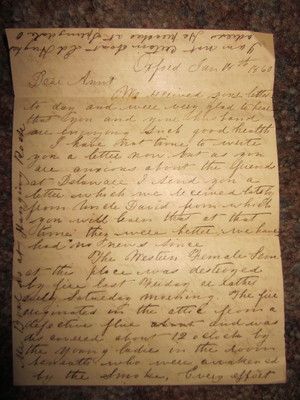 Oxford Jan 18th 1860
Dear Aunt
We received your letter
to day and were very glad to hear
that you and your husband
are enjoying such good health
I have not time to write
you a letter now but as you
are anxious about the friends
at Delaware I send you a
letter which we received lately
from Uncle David from which
you will learn that at that
time they were better we have
had no news since
The Western Female Sem.
at this place was destroyed
by fire last Friday or rather
Saturday morning. The fire
originated in the attic from a
defective flue and was
discovered about 12 o'clock by
the young ladies in the room
beneath who were awakened
by the smoke. Every effort
at Hanging Rock